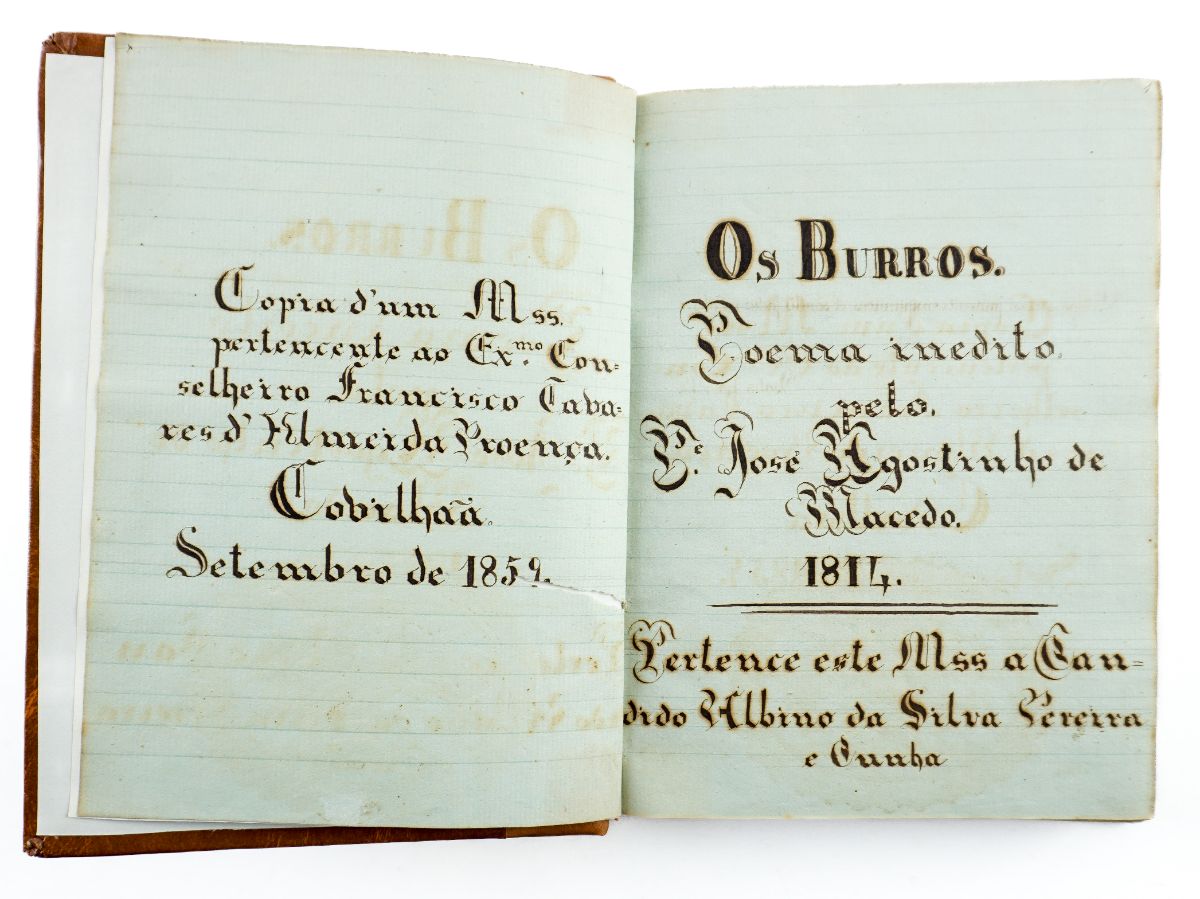 Copia d'um Mss.
pertencente ao Ex.mo Con-
selheiro Francisco Tava-
res d'Almeida Proença.
Covilhaã.
Setembro de 1852.
Os Burros.
Poema inedito.
pelo.
P.e José Agostinho de
Macedo.
1814.
Pertence este Mss a Can-
dido Albino da Silva Pereira
e Cunha